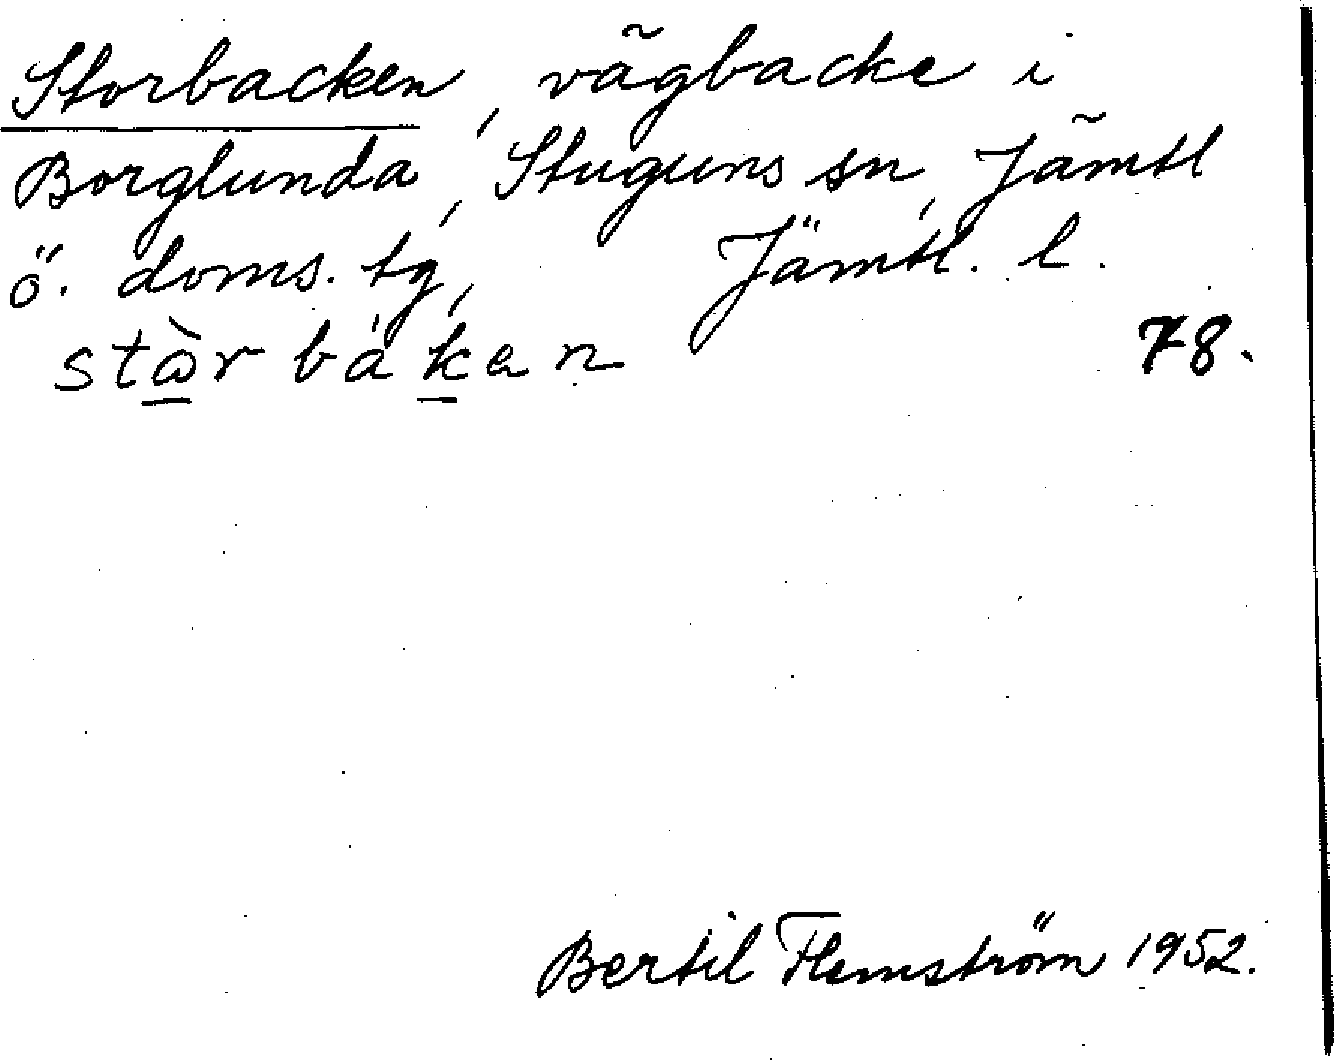 Storbacken, vägbacke i
Borglunda, Stuguns sn, Jämtl
ö. doms. tg, Jämtl. l.
stὼr báken 78.
Bertil Flemström 1952.